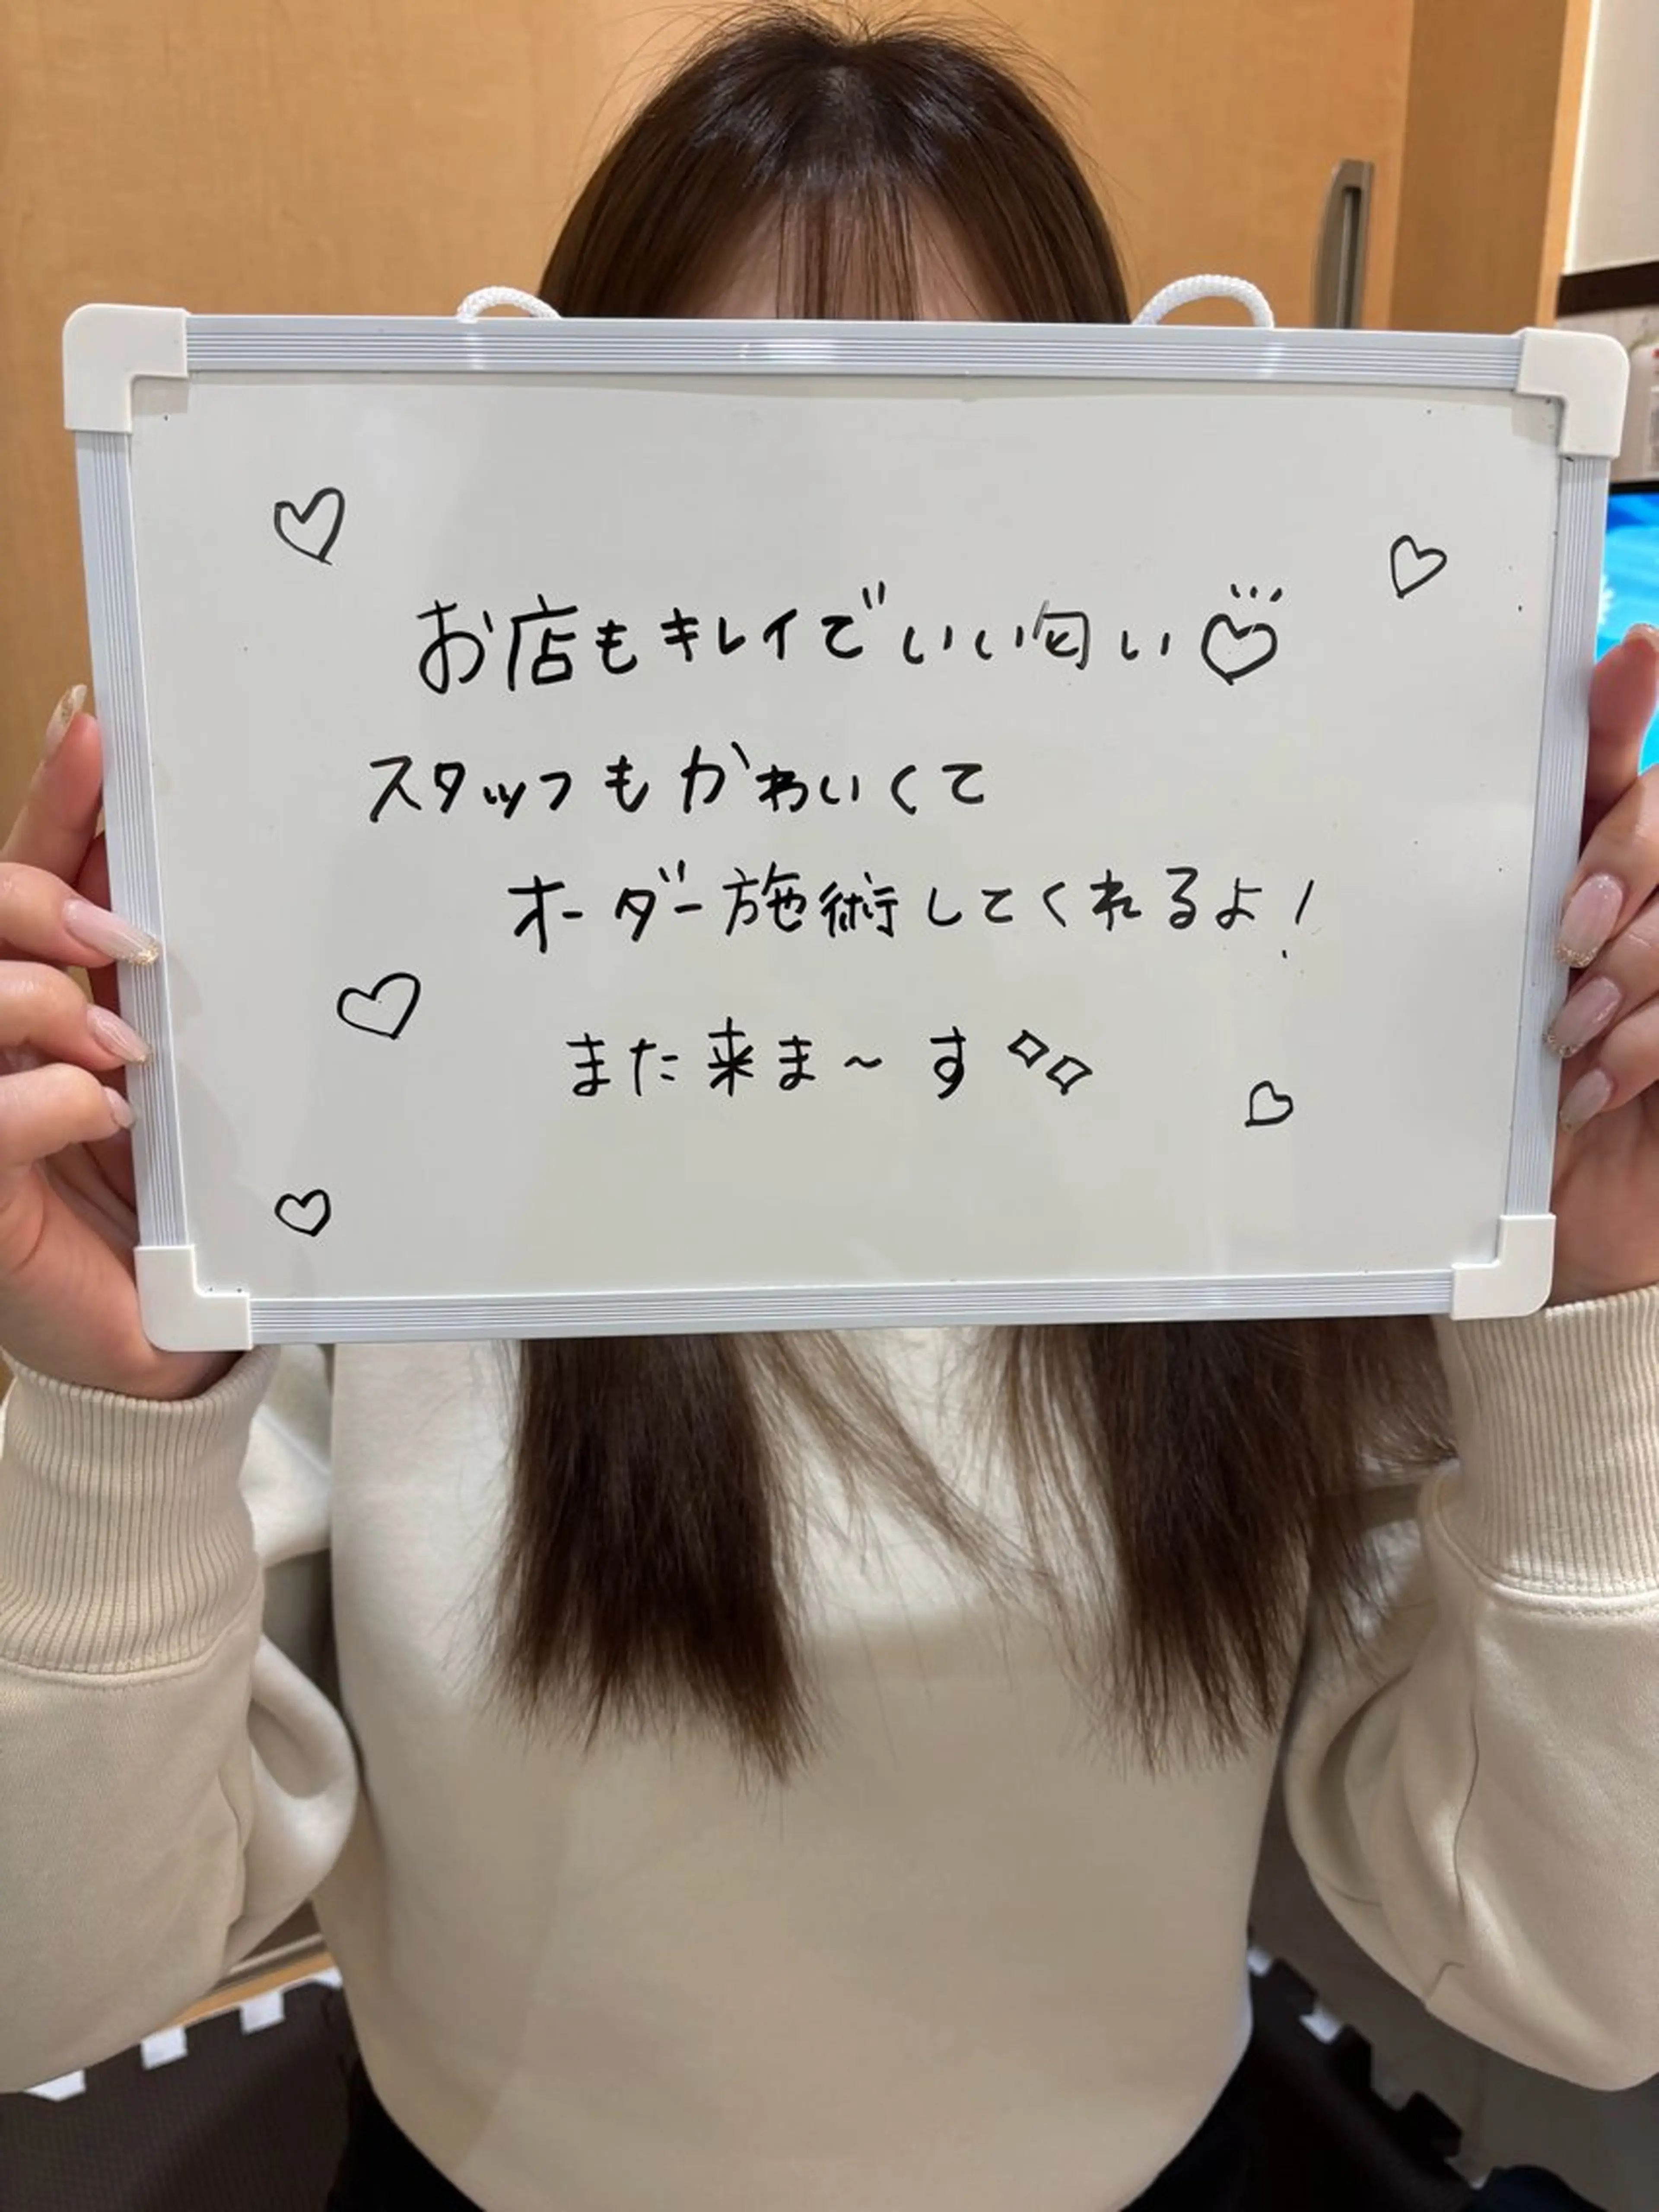 お店もキレイでいい匂い♡
スタッフもかわいくて
オーダー施術してくれるよ!
また来ま~す